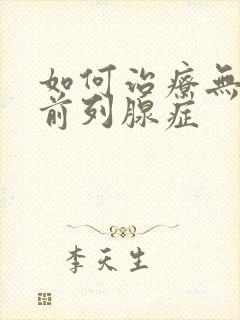 如何治療無
前列腺症
李天生